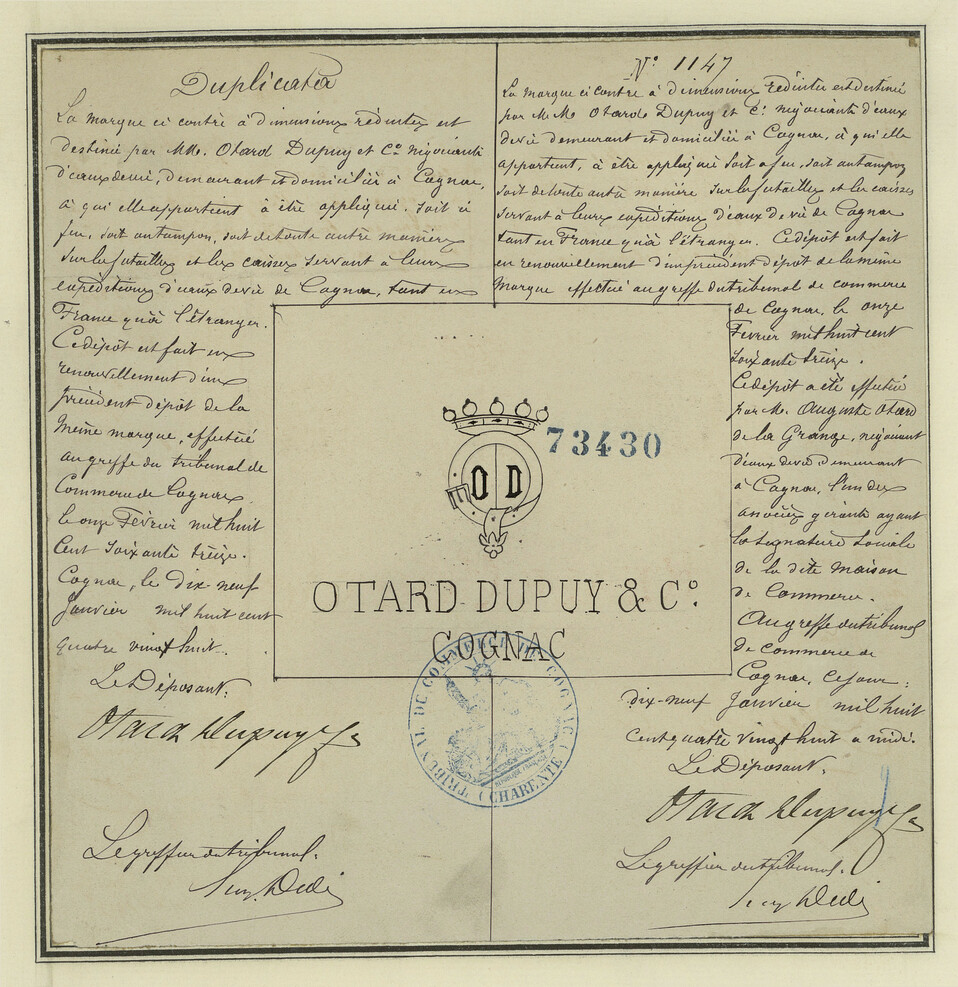 Duplicata
La marque ci contre à dimensions réduites est
destinée par MM. Otard Dupuy et Co négociants
d'eaux de vie, demeurant et domiciliés à Cognac,
à qui elle appartient à être appliquée. soit à
feu, soit au tampon, soit de toute autre manière
sur les futailles et les caisses servant à leurs
expéditions d'eaux de vie de Cognac, tant en
France qu'à l'étranger.
Ce dépôt est fait en
renouvellement d'un
précédent dépôt de la
même marque, effectué
au greffe du tribunal de
Commerce de Cognac
le onze Février mil huit
Cent soixante treize.
Cognac, le dix-neuf
Janvier mil huit cent
quatre vingt huit.
Le Déposant.
Otard Dupuy & Co
Le greffier du tribunal.
No 1147
La marque ci contre à dimensions réduites est destinée
par MM Otard Dupuy et Co négociants d'eaux
de vie demeurant et domiciliés à Cognac, à qui elle
appartient, à être appliquée soit à feu, soit au tampon
soit de toute autre manière sur les futailles et les caisses
servant à leurs expéditions d'eaux de vie de Cognac
tant en France qu'à l'étranger. Ce dépôt est fait
en renouvellement d'un précédent dépôt de la même
marque effectué au greffe du tribunal de commerce
de Cognac, le onze
Février mil huit cent
soixante treize.
Ce dépôt a été effectué
par M. Auguste Otard
de la Grange, négociant
d'eaux de vie demeurant
à Cognac, l'un des
associés gérants ayant
la signature sociale
de la dite maison
de Commerce.
Au greffe du tribunal
de commerce de
Cognac, ce jour :
dix-neuf Janvier mil huit
cent quatre vingt huit a midi.
Le Déposant.
Otard Dupuy & Co
Le greffier du tribunal.
73430
O D
OTARD DUPUY & Co.
COGNAC
TRIBUNAL DU COMMERCE DE COGNAC
(CHARENTE)
RÉPUBLIQUE FRANÇAISE